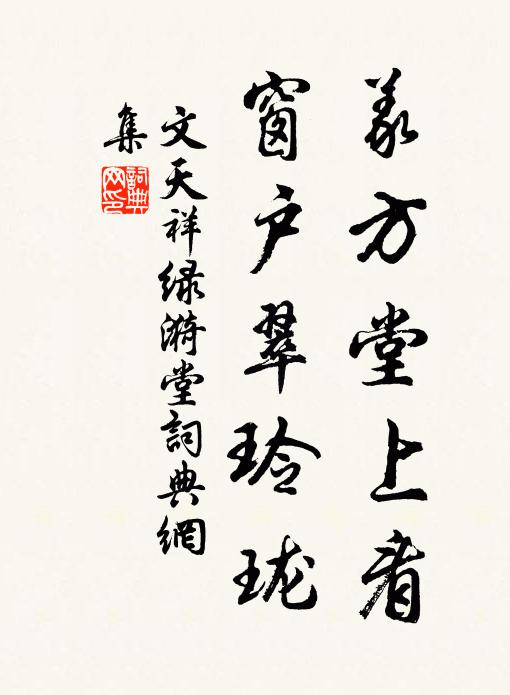 義方堂上看
窗户翠玲珑
文天祥绿漪堂詞典網
集
詞典
网印